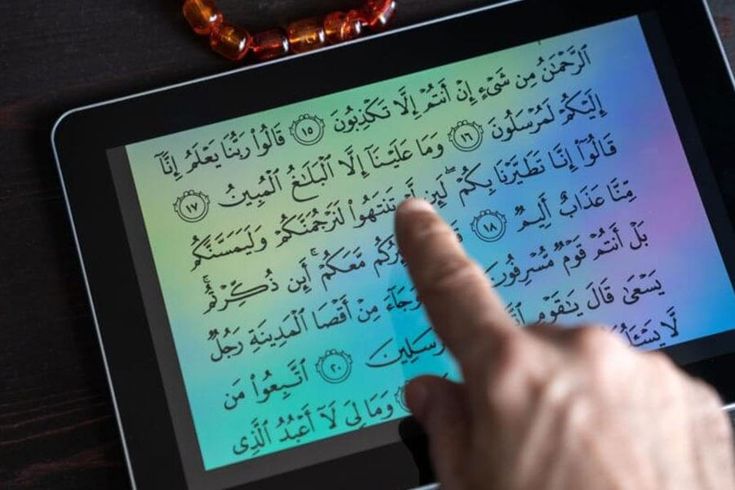 ٱلرَّحۡمَٰنُ مِن شَيۡءٍ إِنۡ أَنتُمۡ إِلَّا تَكۡذِبُونَ ۝١٥ قَالُواْ رَبُّنَا يَعۡلَمُ إِنَّآ
إِلَيۡكُمۡ لَمُرۡسَلُونَ ۝١٦ وَمَا عَلَيۡنَآ إِلَّا ٱلۡبَلَٰغُ ٱلۡمُبِينُ ۝١٧
قَالُوٓاْ إِنَّا تَطَيَّرۡنَا بِكُمۡۖ لَئِن تَنتَهُواْ لَنَرۡجُمَنَّكُمۡ وَلَيَمَسَّنَّكُم
مِّنَّا عَذَابٌ أَلِيمٞ ۝١٨ مَّعَكُمۡ أَئِن ذُكِّرۡتُمۚ
بَلۡ أَنتُمۡ قَوۡمٞ مُّسۡرِفُونَ وَجَآءَ مِنۡ أَقۡصَا ٱلۡمَدِينَةِ رَجُلٞ
يَسۡعَىٰ قَالَ يَٰقَوۡمِ ۝٢٠ ٱتَّبِعُواْ مَن
لَّا وَمَا لِيَ لَآ أَعۡبُدُ ٱلَّذِي